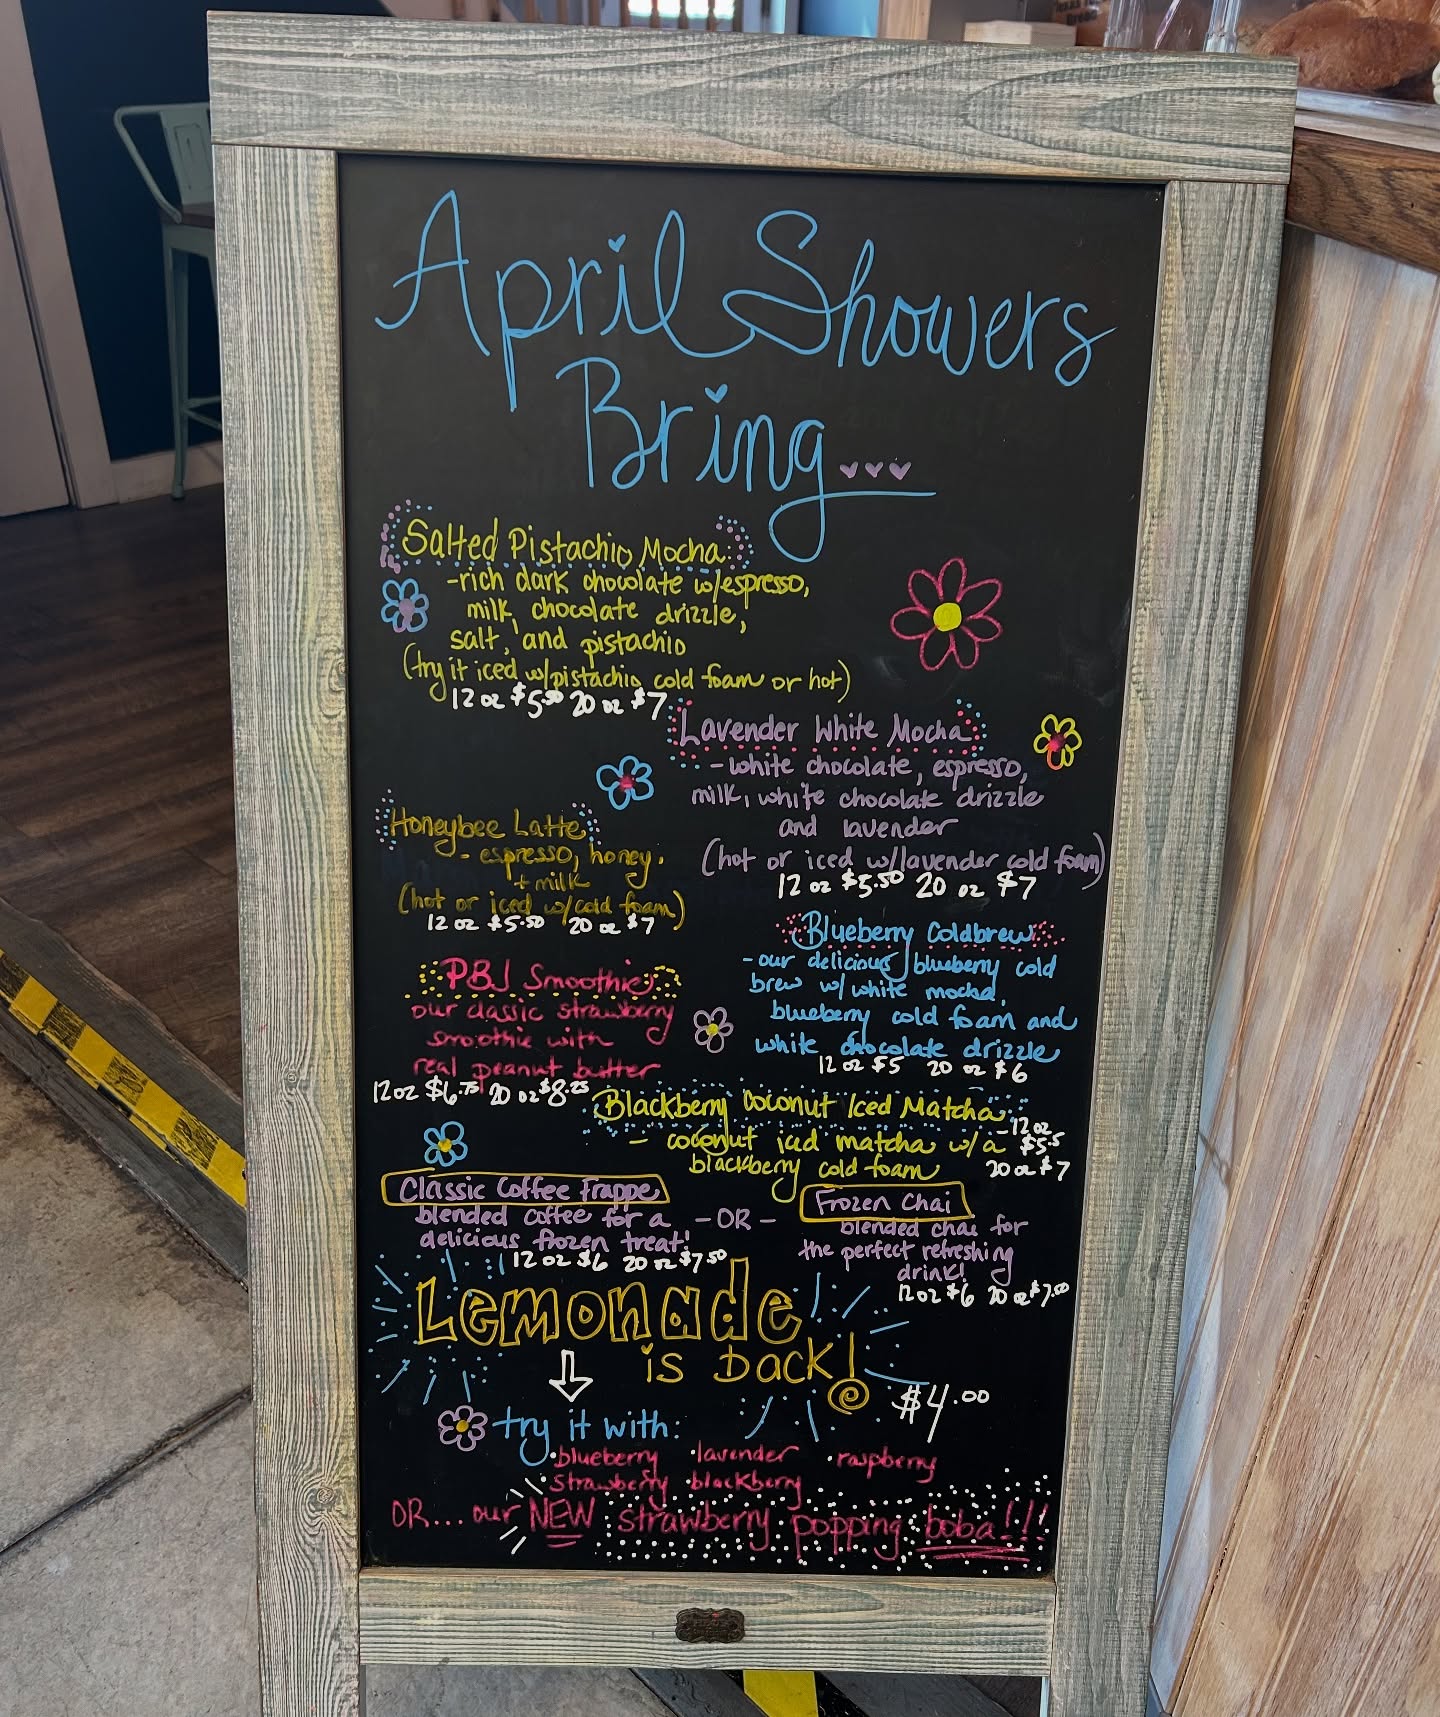 April Showers
Bring...
Salted Pistachio Mocha:
-rich dark chocolate w/espresso,
milk, chocolate drizzle,
salt, and pistachio
(try it iced w/pistachio cold foam or hot)
12 oz $5.50 20 oz $7
Lavender White Mocha
-white chocolate, espresso,
milk, white chocolate drizzle
and lavender
(hot or iced w/lavender cold foam)
12 oz $5.50 20 oz $7
Honeybee Latte
- espresso, honey,
+ milk
(hot or iced w/cold foam)
12 oz $5.50 20 oz $7
Blueberry Coldbrew
-our delicious blueberry cold
brew w/ white mocha,
blueberry cold foam and
white chocolate drizzle
12 oz $5 20 oz $6
PBJ Smoothie
our classic strawberry
smoothie with
real peanut butter
12 oz $6.75 20 oz $8.25
Blackberry Coconut Iced Matcha
- coconut iced matcha w/a
blackberry cold foam
-12 oz
$5.5
20 oz $7
Classic Coffee Frappe
blended coffee for a
delicious frozen treat!
12 oz $6 20 oz $7.50
-OR-
Frozen Chai
blended chai for
the perfect refreshing
drink!
12 oz $6 20 oz $7.00
Lemonade
is back!
$4.00
try it with:
·blueberry ·lavender ·raspberry
·strawberry ·blackberry
OR... our NEW strawberry popping boba!!!